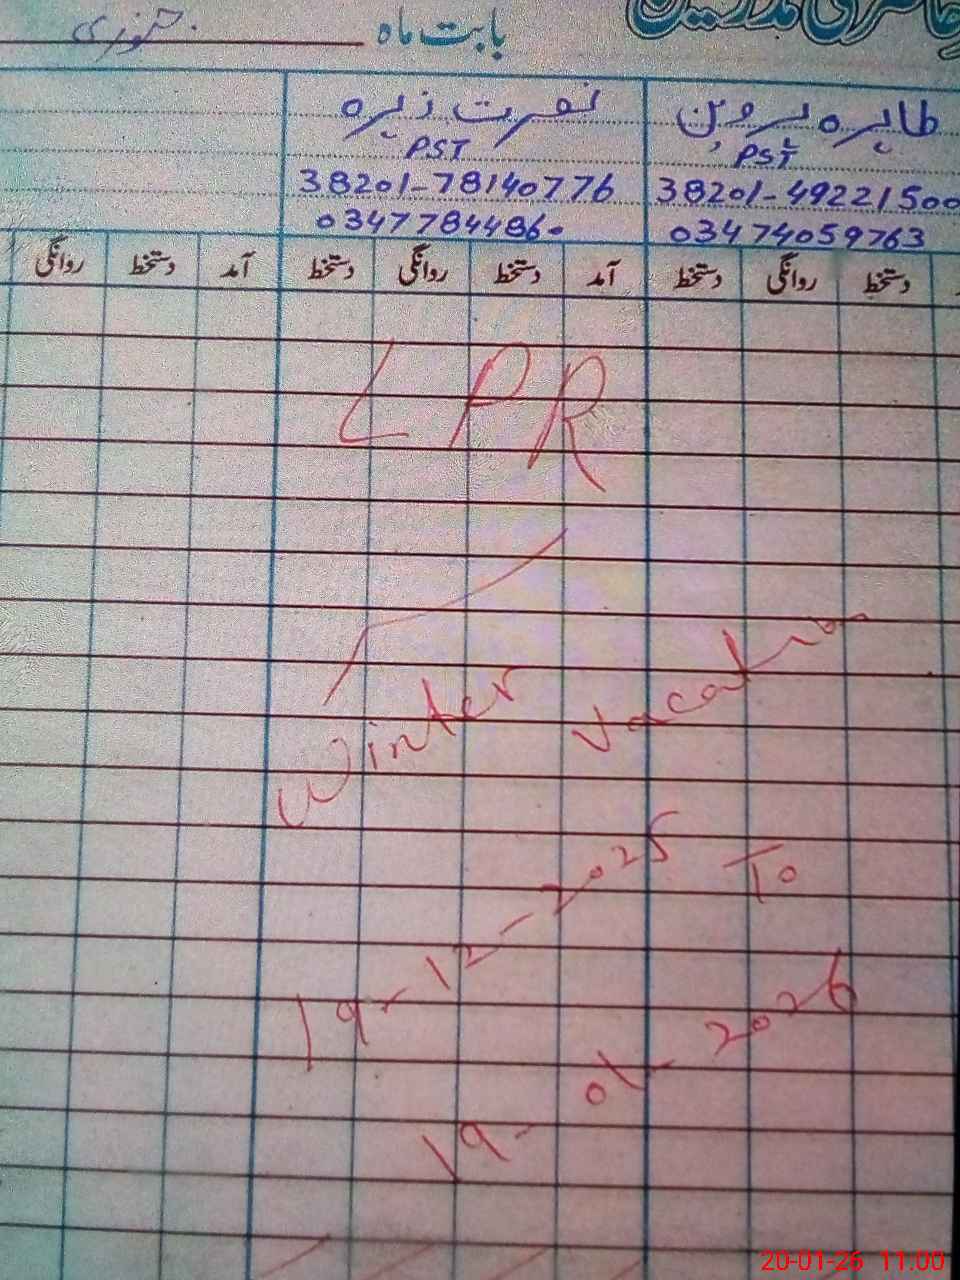 حاضری مدرسین
بابت ماہ جنوری
طاہرہ پروین نصرت زہرہ
PST PST
38201-49221500 38201-78140776
03474059763 0347784486০
دستخط روانگی دستخط آمد دستخط روانگی دستخط آمد دستخط روانگی
LPR
Winter Vacation
19-12-2025 To
19-01-2026
20-01-26 11:00